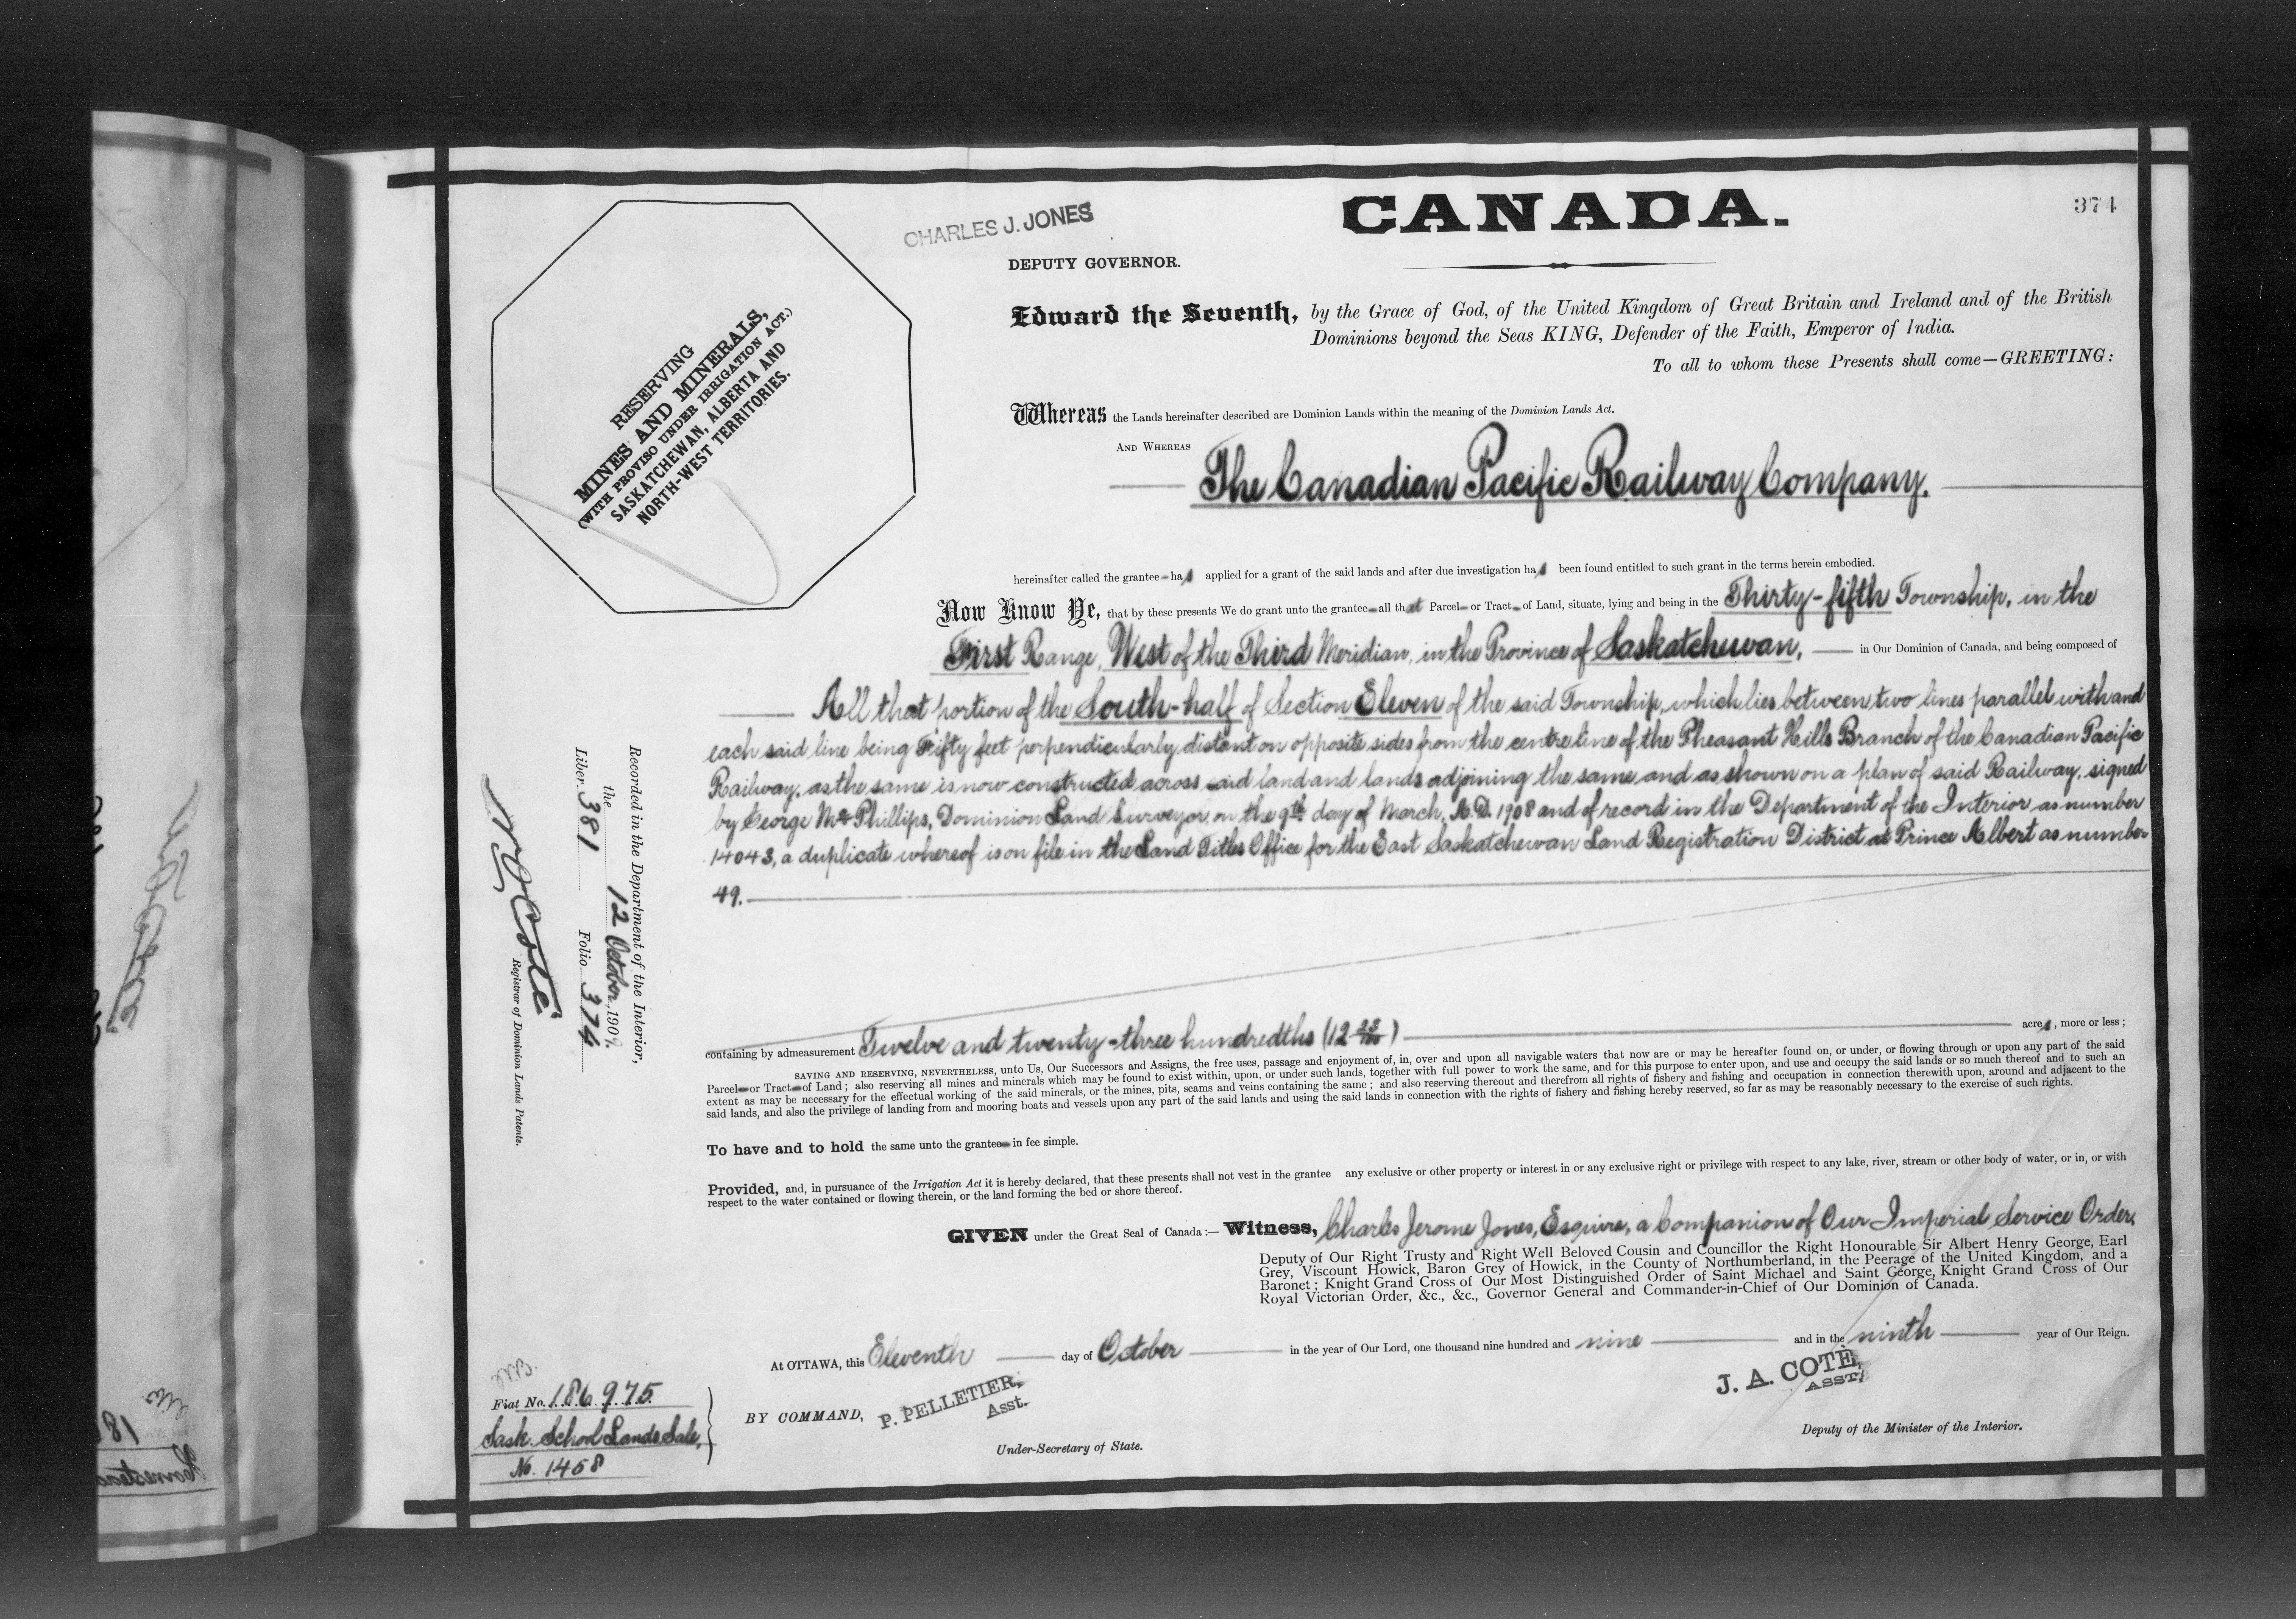 374
CANADA.
CHARLES J. JONES
DEPUTY GOVERNOR.
RESERVING
MINES AND MINERALS,
(WITH PROVISO UNDER IRRIGATION ACT.)
SASKATCHEWAN, ALBERTA AND
NORTH-WEST TERRITORIES.
Edward the Seventh, by the Grace of God, of the United Kingdom of Great Britain and Ireland and of the British
Dominions beyond the Seas KING, Defender of the Faith, Emperor of India.
To all to whom these Presents shall come—GREETING:
Whereas the Lands hereinafter described are Dominion Lands within the meaning of the Dominion Lands Act.
AND WHEREAS
The Canadian Pacific Railway Company.
hereinafter called the grantee has applied for a grant of the said lands and after due investigation has been found entitled to such grant in the terms herein embodied.
Now Know Ye, that by these presents We do grant unto the grantee all that Parcel or Tract of Land, situate, lying and being in the Thirty-fifth Township, in the
First Range, West of the Third Meridian, in the Province of Saskatchewan, in Our Dominion of Canada, and being composed of
All that portion of the South-half of Section Eleven of the said Township, which lies between two lines parallel with and
each said line being Fifty feet perpendicularly distant on opposite sides from the centre line of the Pheasant Hills Branch of the Canadian Pacific
Railway, as the same is now constructed across said land and lands adjoining the same and as shown on a plan of said Railway, signed
by George McPhillips, Dominion Land Surveyor, on the 9th day of March, A.D. 1908 and of record in the Department of the Interior as number
14043, a duplicate whereof is on file in the Land Titles Office for the East Saskatchewan Land Registration District at Prince Albert as number
49.
containing by admeasurement Twelve and twenty-three hundredths (12 23/100) acres, more or less;
SAVING AND RESERVING, NEVERTHELESS, unto Us, Our Successors and Assigns, the free uses, passage and enjoyment of, in, over and upon all navigable waters that now are or may be hereafter found on, or under, or flowing through or upon any part of the said
Parcel or Tract of Land; also reserving all mines and minerals which may be found to exist within, upon, or under such lands, together with full power to work the same, and for this purpose to enter upon, and use and occupy the said lands or so much thereof and to such an
extent as may be necessary for the effectual working of the said minerals, or the mines, pits, seams and veins containing the same; and also reserving thereout and therefrom all rights of fishery and fishing and occupation in connection therewith upon, around and adjacent to the
said lands, and also the privilege of landing from and mooring boats and vessels upon any part of the said lands and using the said lands in connection with the rights of fishery and fishing hereby reserved, so far as may be reasonably necessary to the exercise of such rights.
To have and to hold the same unto the grantee in fee simple.
Provided, and, in pursuance of the Irrigation Act it is hereby declared, that these presents shall not vest in the grantee any exclusive or other property or interest in or any exclusive right or privilege with respect to any lake, river, stream or other body of water, or in, or with
respect to the water contained or flowing therein, or the land forming the bed or shore thereof.
GIVEN under the Great Seal of Canada:— Witness, Charles Jerome Jones, Esquire, a Companion of Our Imperial Service Order,
Deputy of Our Right Trusty and Right Well Beloved Cousin and Councillor the Right Honourable Sir Albert Henry George, Earl
Grey, Viscount Howick, Baron Grey of Howick, in the County of Northumberland, in the Peerage of the United Kingdom, and a
Baronet; Knight Grand Cross of Our Most Distinguished Order of Saint Michael and Saint George, Knight Grand Cross of Our
Royal Victorian Order, &c., &c., Governor General and Commander-in-Chief of Our Dominion of Canada.
At OTTAWA, this Eleventh day of October in the year of Our Lord, one thousand nine hundred and nine and in the ninth year of Our Reign.
BY COMMAND, P. PELLETIER,
Asst.
Under-Secretary of State.
J. A. COTE,
ASST.
Deputy of the Minister of the Interior.
Recorded in the Department of the Interior,
the 12 October, 1909.
Liber 381 Folio 374
N O Coté
Registrar of Dominion Lands Patents.
Fiat No. 186975
Sask. School Lands Sale,
No. 1458